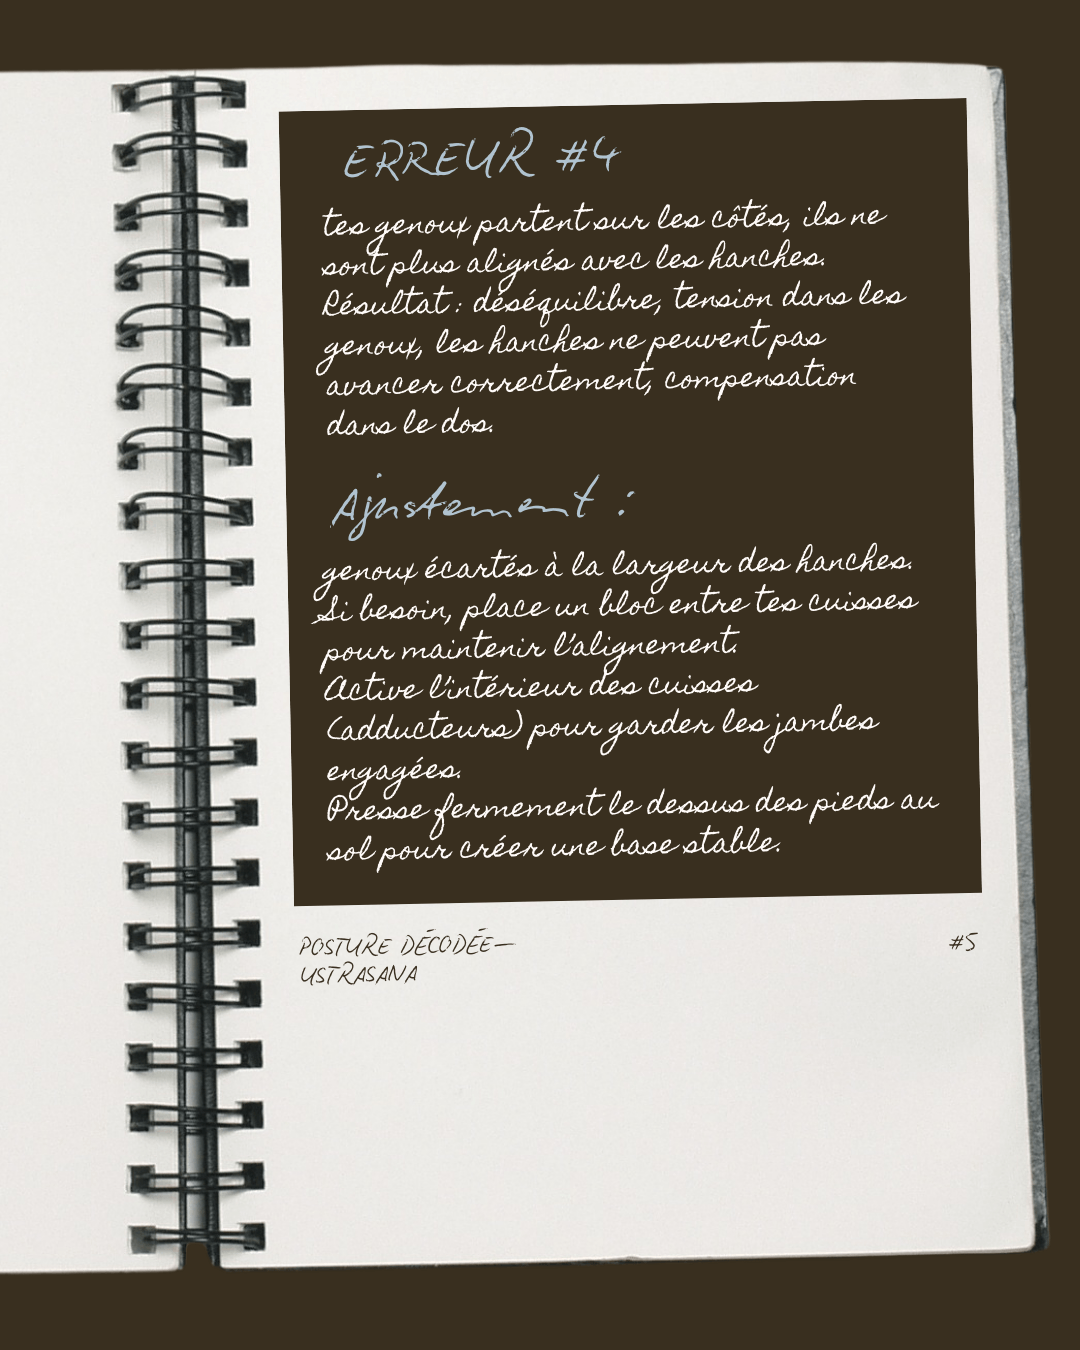 ERREUR #4
tes genoux partent sur les côtés, ils ne
sont plus alignés avec les hanches.
Résultat : déséquilibre, tension dans les
genoux, les hanches ne peuvent pas
avancer correctement, compensation
dans le dos.
Ajustement :
genoux écartés à la largeur des hanches.
Si besoin, place un bloc entre tes cuisses
pour maintenir l'alignement.
Active l'intérieur des cuisses
(adducteurs) pour garder les jambes
engagées.
Presse fermement le dessus des pieds au
sol pour créer une base stable.
POSTURE DÉCODÉE—
USTRASANA
#5